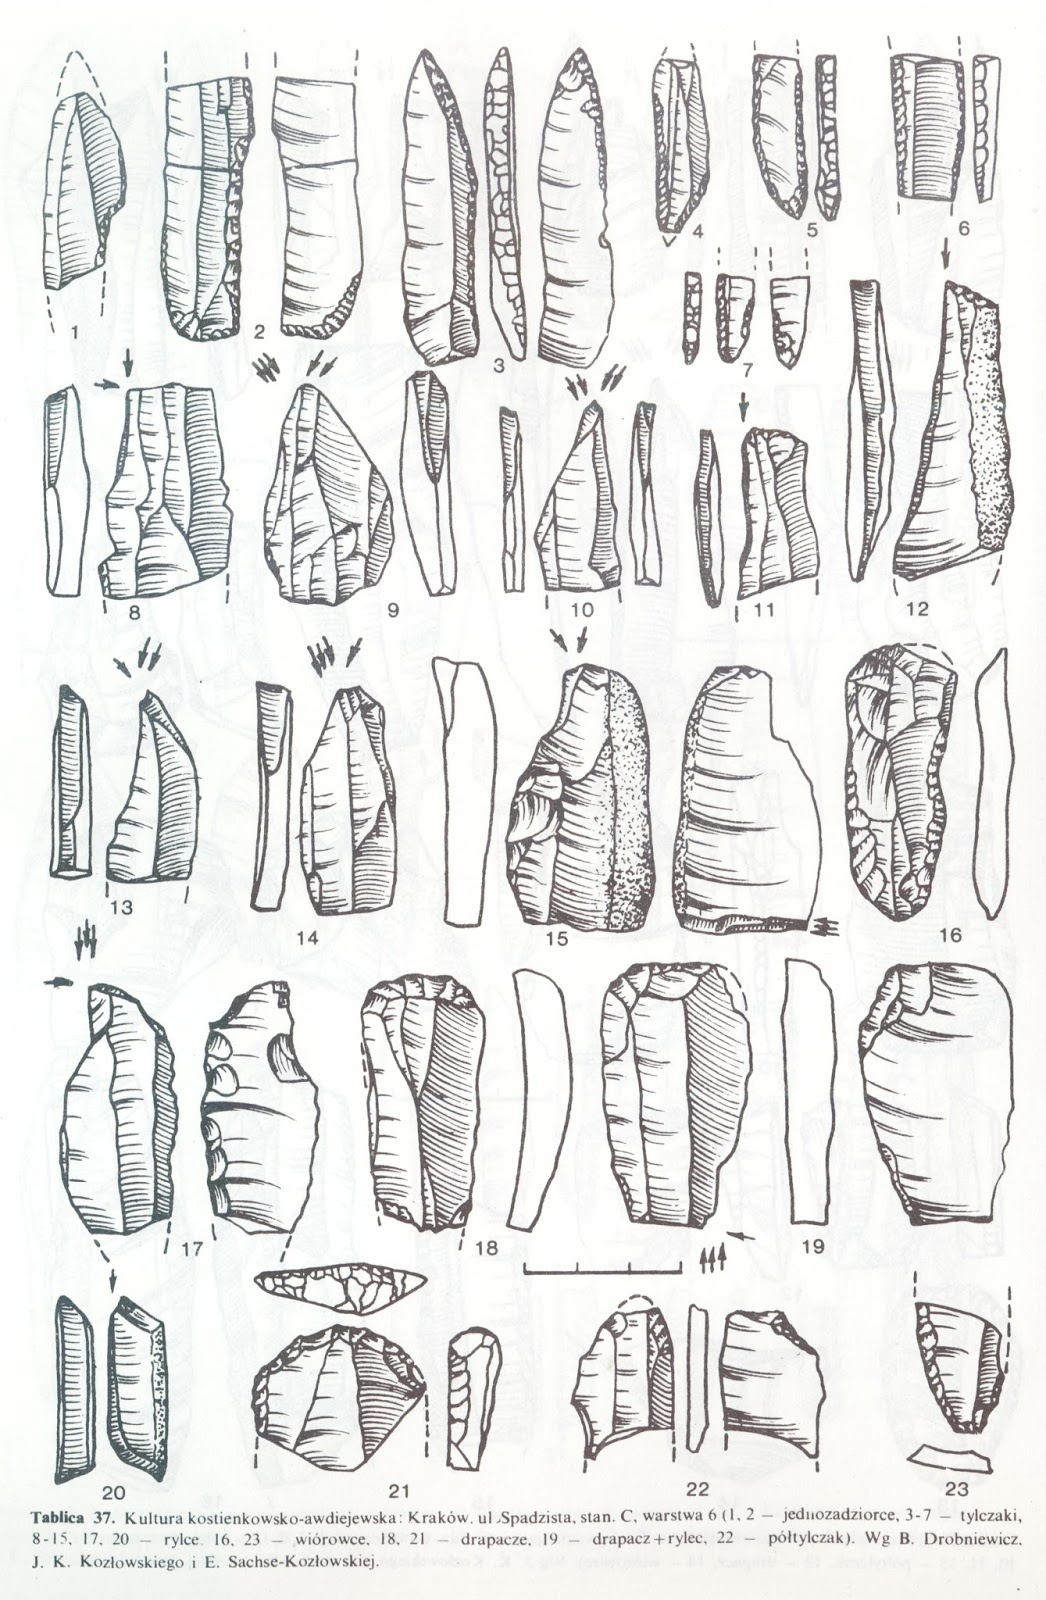 1
2
3
4
5
6
7
8
9
10
11
12
13
14
15
16
17
18
19
20
21
22
23
Tablica 37. Kultura kostienkowsko-awdiejewska: Kraków, ul. Spadzista, stan. C, warstwa 6 (1, 2 – jednozadziorce, 3-7 – tylczaki,
8-15, 17, 20 – rylce. 16, 23 – wiórowce, 18, 21 – drapacze, 19 – drapacz+rylec, 22 – półtylczak). Wg B. Drobniewicz,
J. K. Kozłowskiego i E. Sachse-Kozłowskiej.